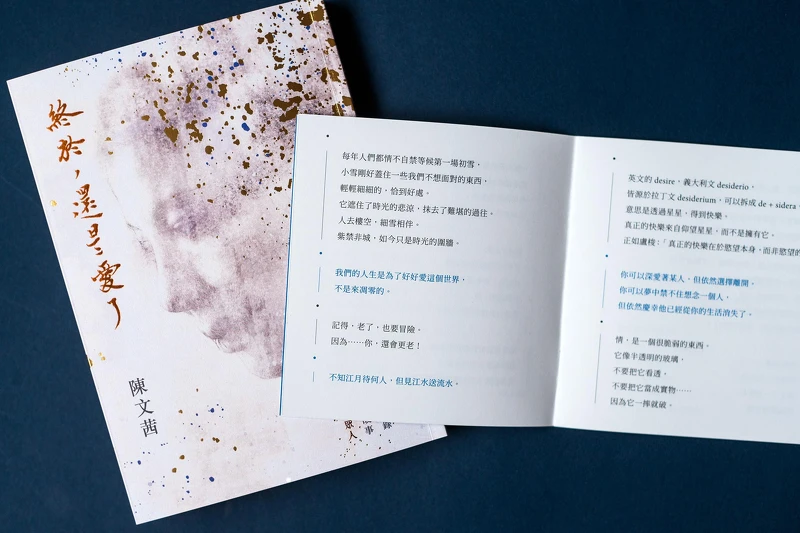 終於，還是愛了
陳文茜
每年人們都情不自禁等候第一場初雪，
小雪剛好蓋住一些我們不想面對的東西，
輕輕細細的，恰到好處。
它遮住了時光的悲涼，抹去了難堪的過往。
人去樓空，細雪相伴。
紫禁非城，如今只是時光的圍牆。
我們的人生是為了好好愛這個世界，
不是來凋零的。
記得，老了，也要冒險。
因為……你，還會更老！
不知江月待何人，但見江水送流水。
英文的 desire，義大利文 desiderio，
皆源於拉丁文 desiderium，可以拆成 de + sidera，
意思是透過星星，得到快樂。
真正的快樂來自仰望星星，而不是擁有它。
正如盧梭：「真正的快樂在於慾望本身，而非慾望的
你可以深愛著某人，但依然選擇離開。
你可以夢中禁不住想念一個人，
但依然慶幸他已經從你的生活消失了。
情，是一個很脆弱的東西。
它像半透明的玻璃，
不要把它看透，
不要把它當成實物……
因為它一摔就破。